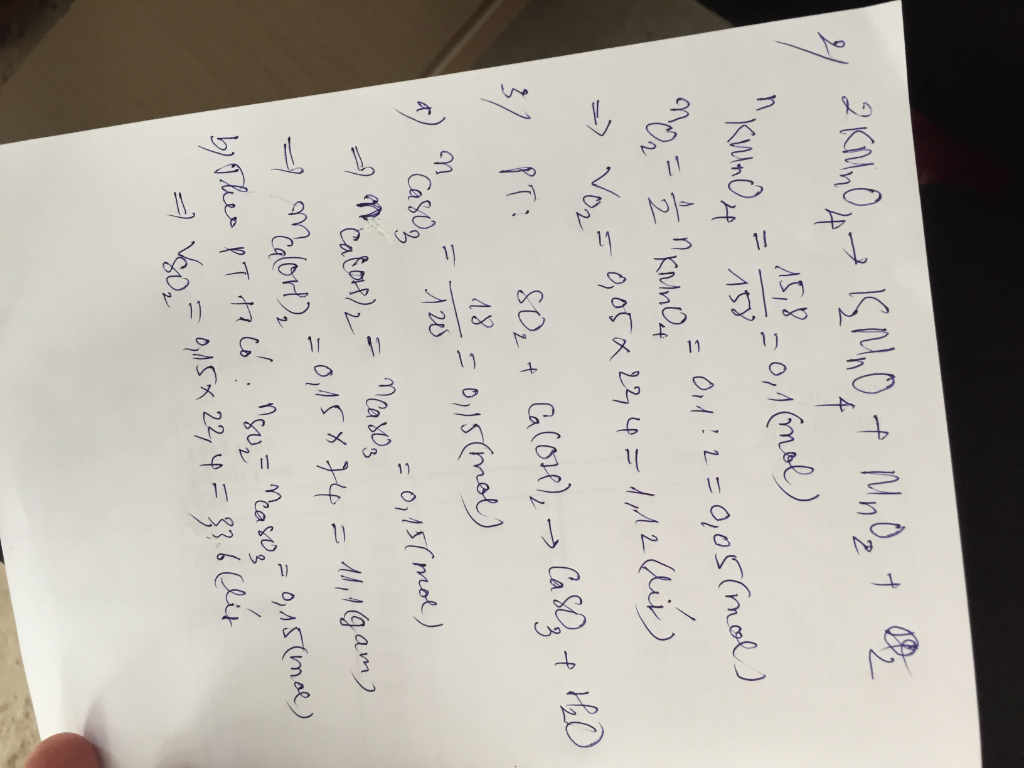 2/ 2KMnO₄ → K₂MnO₄ + MnO₂ + O₂
n KMnO₄ = 15,8/158 = 0,1 (mol)
nO₂ = 1/2 nKMnO₄ = 0,1 : 2 = 0,05 (mol)
=> VO₂ = 0,05 x 22,4 = 1,12 (lít)
3/ PT: SO₂ + Ca(OH)₂ → CaSO₃ + H₂O
a) n CaSO₃ = 18/120 = 0,15 (mol)
=> n Ca(OH)₂ = nCaSO₃ = 0,15 (mol)
=> mCa(OH)₂ = 0,15 x 74 = 11,1 (gam)
b) Theo PT ta có: nSO₂ = nCaSO₃ = 0,15 (mol)
=> VSO₂ = 0,15 x 22,4 = 33,6 (lít